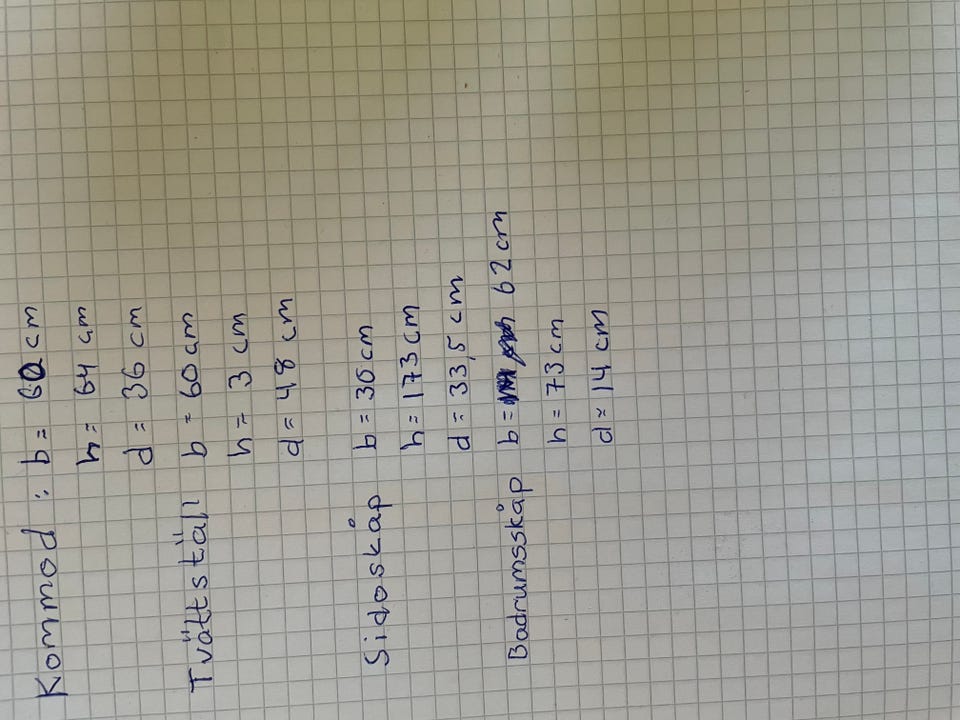 Kommod : b = 60 cm
h = 64 cm
d = 36 cm
Tvättställ b = 60 cm
h = 3 cm
d = 48 cm
Sidoskåp b = 36 cm
h = 173 cm
d = 33,5 cm
Badrumsskåp b = 62 cm
h = 73 cm
d = 14 cm